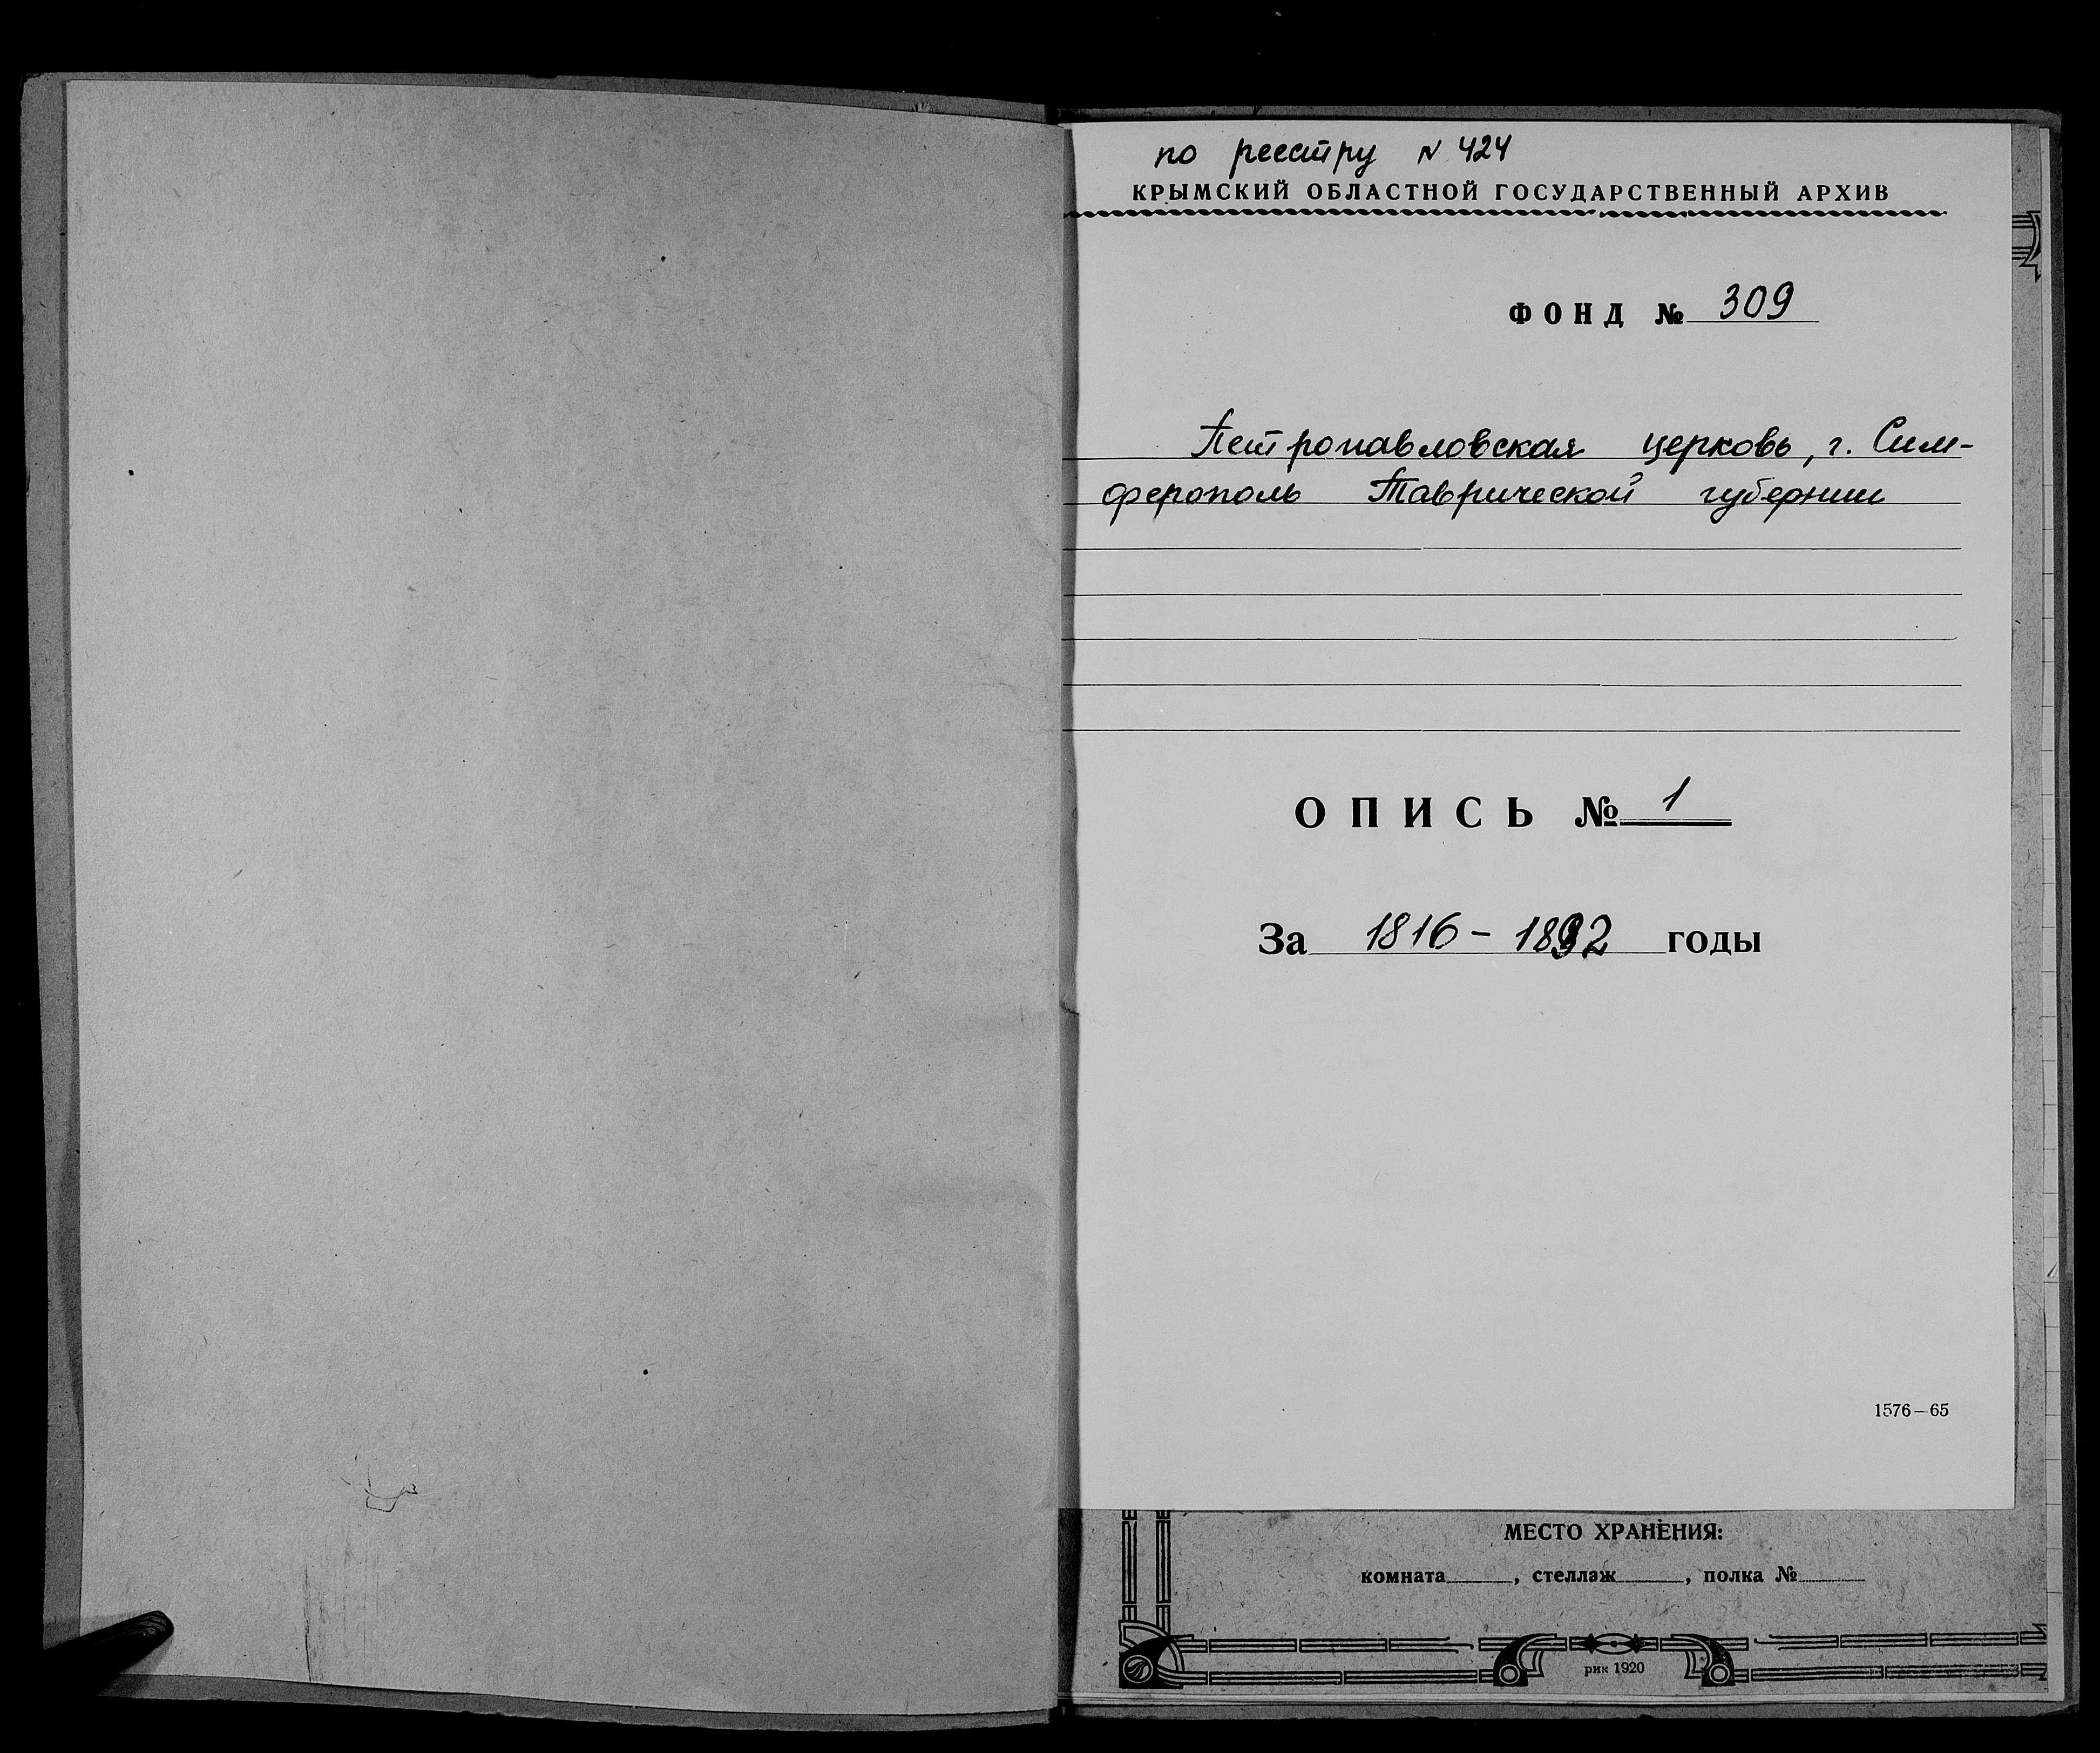 по реестру № 424
КРЫМСКИЙ ОБЛАСТНОЙ ГОСУДАРСТВЕННЫЙ АРХИВ
ФОНД № 309
Петропавловская церковь, г. Сим-
ферополь Таврической губернии
ОПИСЬ № 1
За 1816 - 1892 годы
1576—65
МЕСТО ХРАНЕНИЯ:
комната , стеллаж , полка №
рик 1920